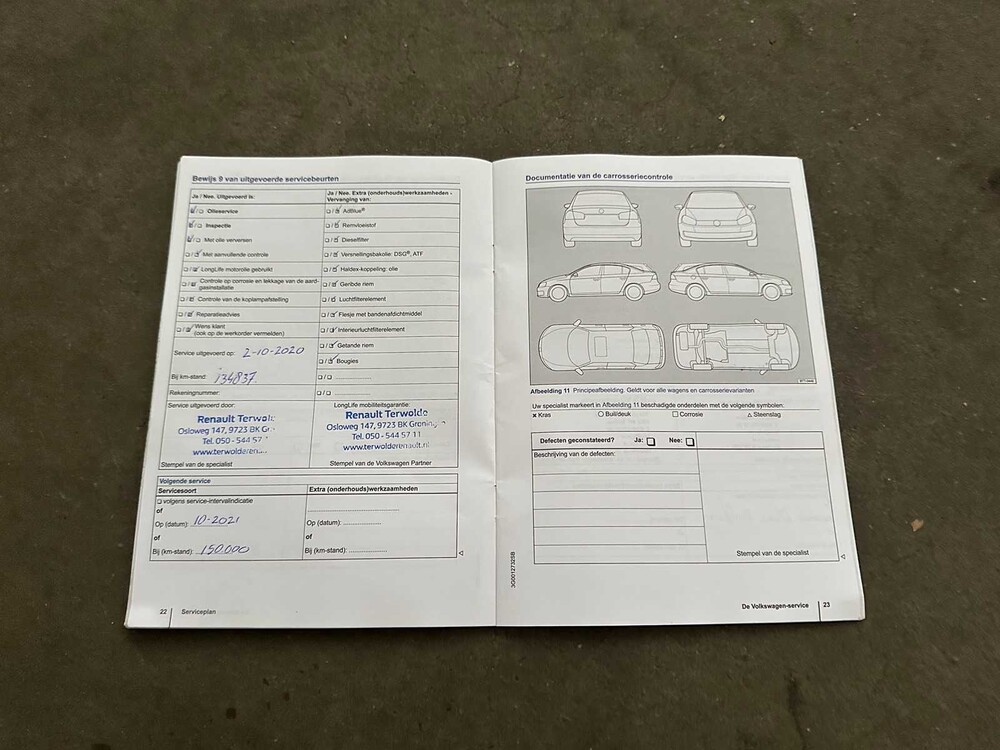 Bewijs 9 van uitgevoerde servicebeurten
Ja / Nee. Uitgevoerd is:
Olieservice
Inspectie
Met olie verversen
Met aanvullende controle
LongLife motorolie gebruikt
Controle op corrosie en lekkage van de aard-
gasinstallatie
Controle van de koplampafstelling
Reparatieadvies
Wens klant
(ook op de werkorder vermelden)
Service uitgevoerd op: 2-10-2020
Bij km-stand: 134837
Rekeningnummer:
Service uitgevoerd door:
Renault Terwol
Osloweg 147, 9723 BK Gr
Tel. 050 - 544 57
www.terwolderen
Stempel van de specialist
Ja / Nee. Extra (onderhouds)werkzaamheden -
Vervanging van:
AdBlue®
Remvloeistof
Dieselfilter
Versnellingsbakolie: DSG®, ATF
Haldex-koppeling: olie
Geribde riem
Luchtfilterelement
Flesje met bandenafdichtmiddel
Interieurluchtfilterelement
Getande riem
Bougies
LongLife mobiliteitsgarantie:
Renault Terwolde
Osloweg 147, 9723 BK Groning
Tel. 050 - 544 57 11
www.terwolderenault.nl
Stempel van de Volkswagen Partner
Volgende service
Servicesoort
volgens service-intervalindicatie
of
Op (datum): 10-2021
of
Bij (km-stand): 150.000
Extra (onderhouds)werkzaamheden
Op (datum):
of
Bij (km-stand):
22 Serviceplan
Documentatie van de carrosseriecontrole
Afbeelding 11 Principeafbeelding. Geldt voor alle wagens en carrosserievarianten
Uw specialist markeert in Afbeelding 11 beschadigde onderdelen met de volgende symbolen:
× Kras ○ Buil/deuk □ Corrosie △ Steenslag
Defecten geconstateerd? Ja: Nee:
Beschrijving van de defecten:
Stempel van de specialist
3G0012732SB
De Volkswagen-service 23